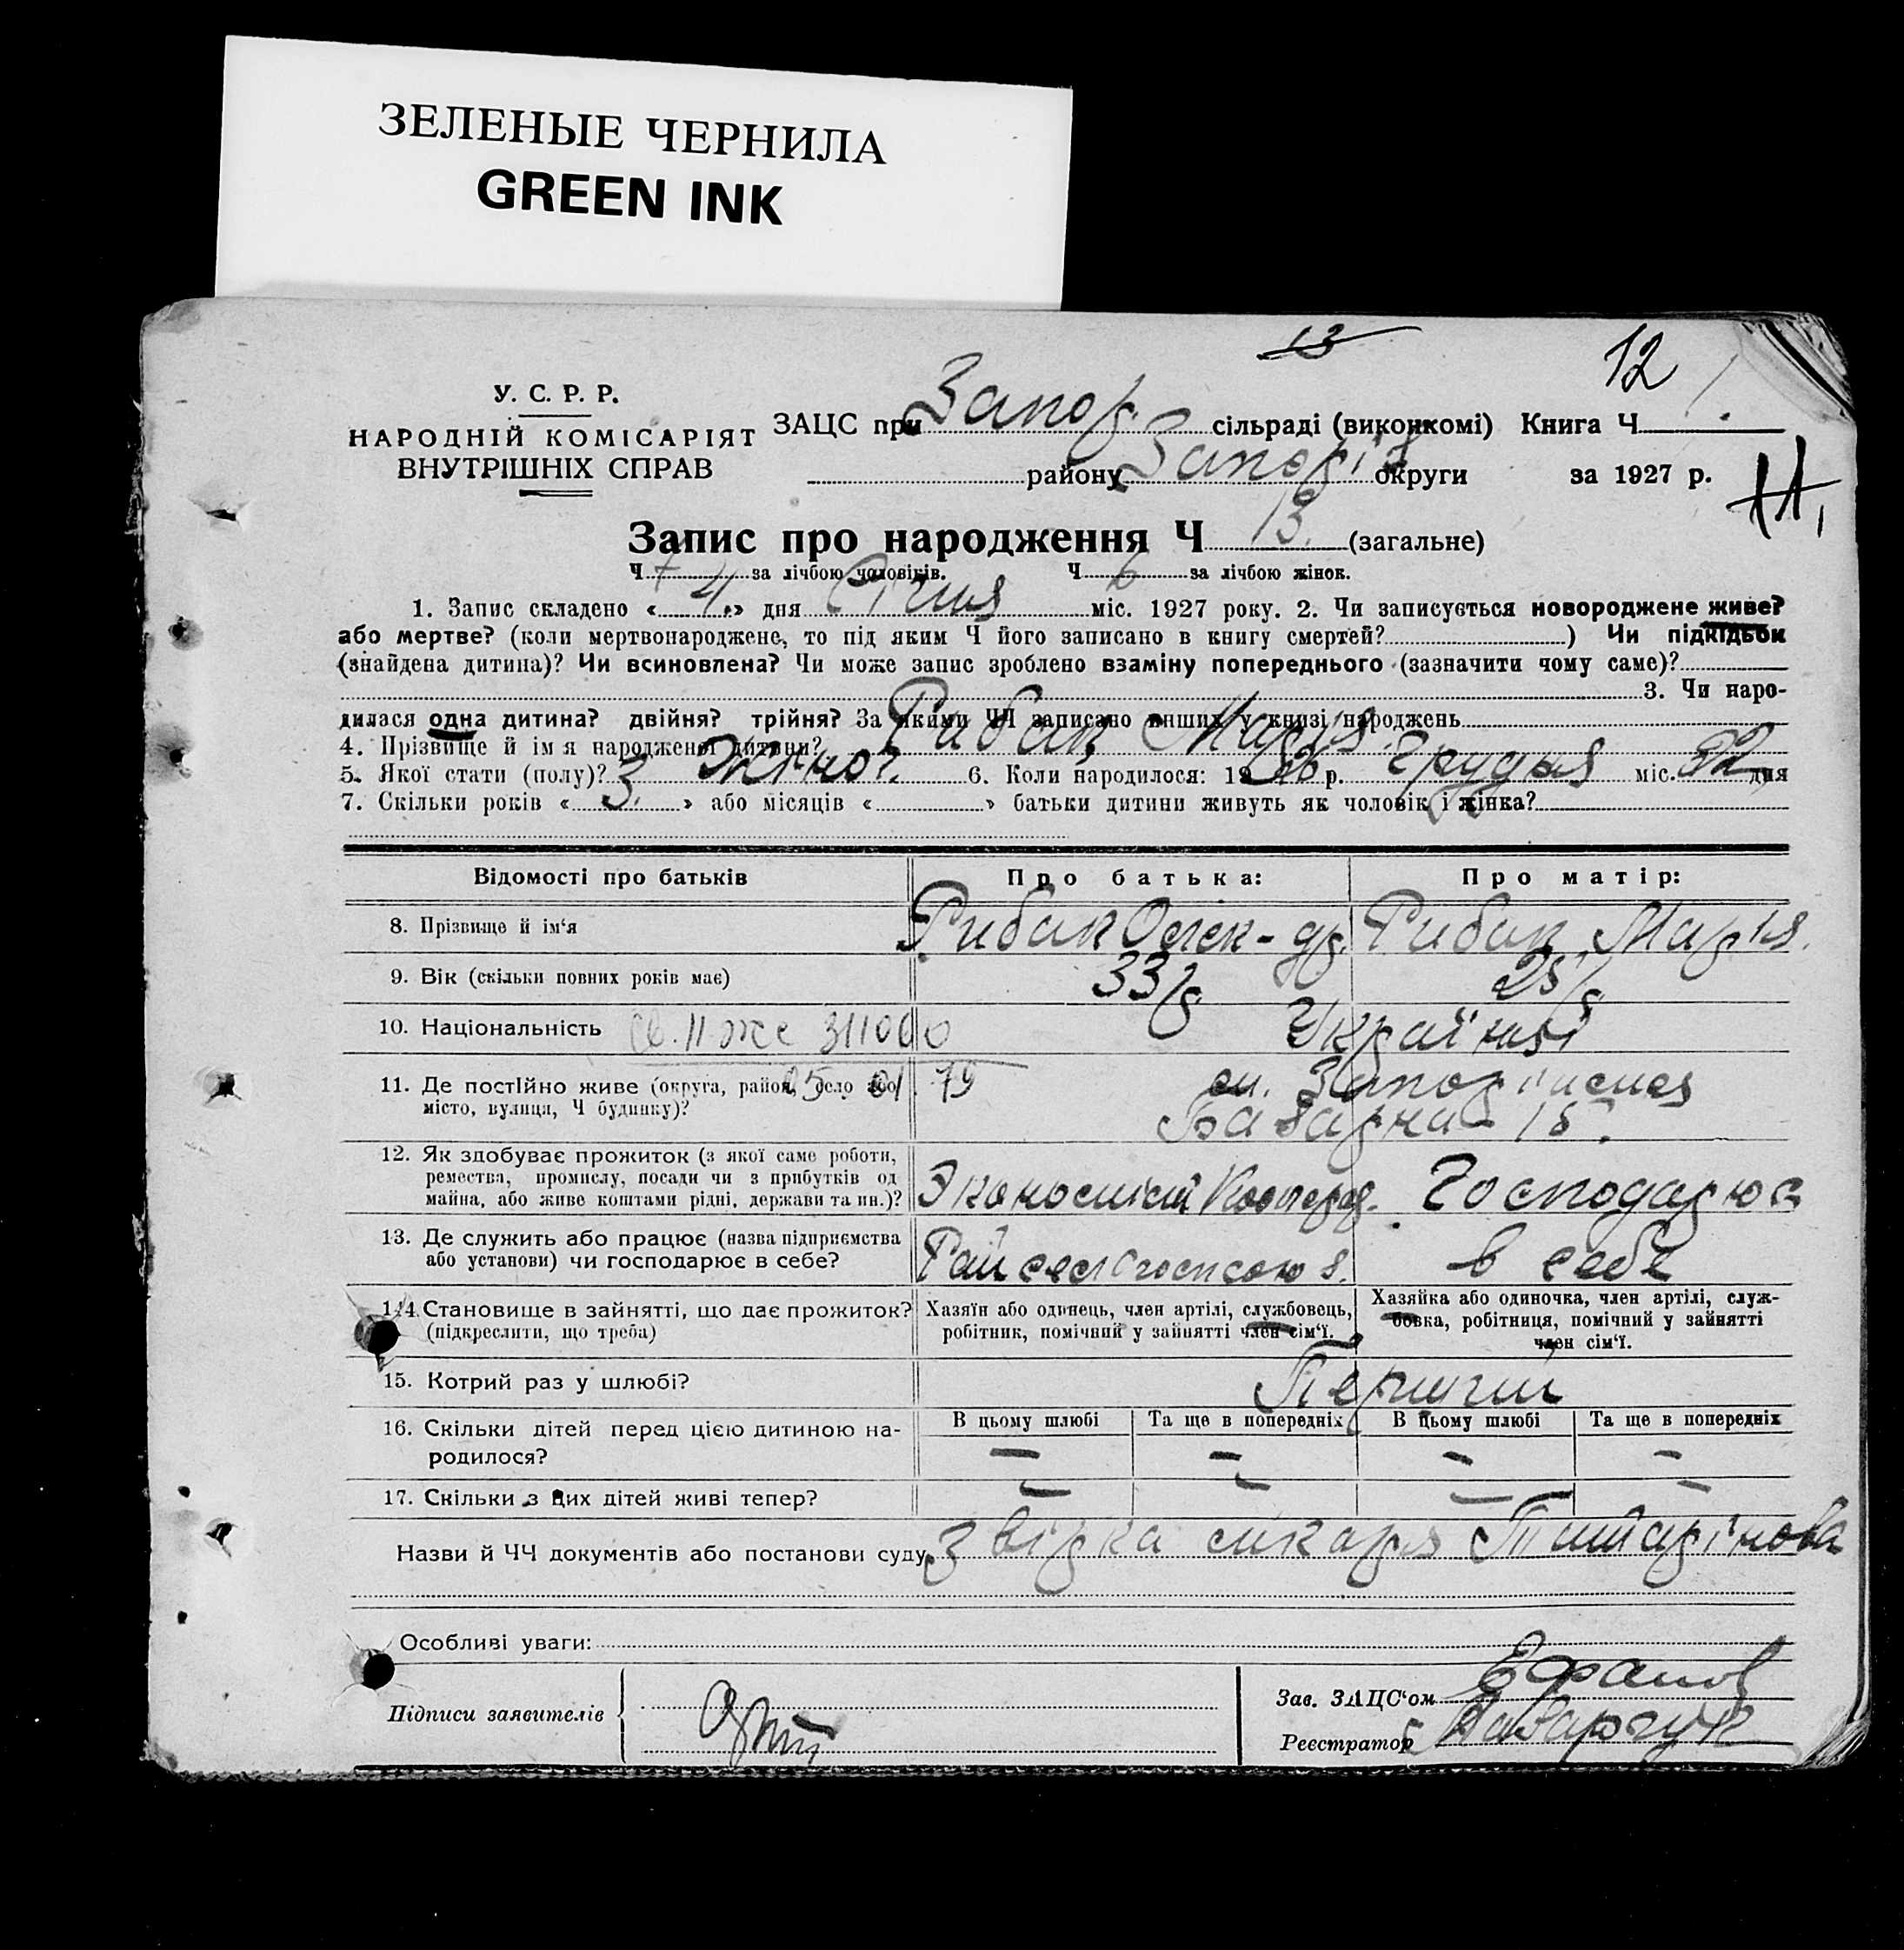 ЗЕЛЕНЫЕ ЧЕРНИЛА
GREEN INK
13
12
У. С. Р. Р.
НАРОДНІЙ КОМІСАРІЯТ
ВНУТРІШНІХ СПРАВ
ЗАЦС при Запор сільраді (виконкомі) Книга Ч 1.
району Запоріз округи за 1927 р.
11.
Запис про народження Ч 13. (загальне)
Ч 7 за лічбою чоловіків. Ч 6 за лічбою жінок.
1. Запис складено « 4. » дня Січня міс. 1927 року. 2. Чи записується новороджене живе?
або мертве? (коли мертвонароджене, то під яким Ч його записано в книгу смертей? ) Чи підкідьок
(знайдена дитина)? Чи всиновлена? Чи може запис зроблено взаміну попереднього (зазначити чому саме)?
3. Чи наро-
дилася одна дитина? двійня? трійня? За якими ЧЧ записано инших у книзі народжень
4. Прізвище й ім я народженої дитини? Рибак Марія.
5. Якої стати (полу)? Жіноч. 6. Коли народилося: 1926 р. Грудня міс. дня
7. Скільки років « 3. » або місяців « » батьки дитини живуть як чоловік і жінка?
Відомості про батьків
Про батька:
Про матір:
8. Прізвище й ім‘я
Рибак Олек-др
Рибак Марія.
9. Вік (скільки повних років має)
33/р
25/р
10. Національність
Св. II ЖС 311000
Україн
11. Де постійно живе (округа, район, село або
місто, вулиця, Ч будинку)?
25 01 79
м. Запоріжжя
Базарна 15.
12. Як здобуває прожиток (з якої саме роботи,
ремества, промислу, посади чи з прибутків од
майна, або живе коштами рідні, держави та ин.)?
Кооперат.
Господарює
13. Де служить або працює (назва підприємства
або установи) чи господарює в себе?
Райсельгоспсоюз.
в себе
14. Становище в зайнятті, що дає прожиток?
(підкреслити, що треба)
Хазяїн або одинець, член артілі, службовець,
робітник, помічний у зайнятті член сім‘ї.
Хазяйка або одиночка, член артілі, служ-
бовка, робітниця, помічний у зайнятті
член сім‘ї.
15. Котрий раз у шлюбі?
Перший
16. Скільки дітей перед цією дитиною на-
родилося?
В цьому шлюбі
Та ще в попередніх
В цьому шлюбі
Та ще в попередніх
— — — —
17. Скільки з цих дітей живі тепер?
— — — —
Назви й ЧЧ документів або постанови суду Звірка лікаря
Особливі уваги:
Підписи заявителів
Зав. ЗАЦС‘ом Ефанов
Реєстратор Назарчук